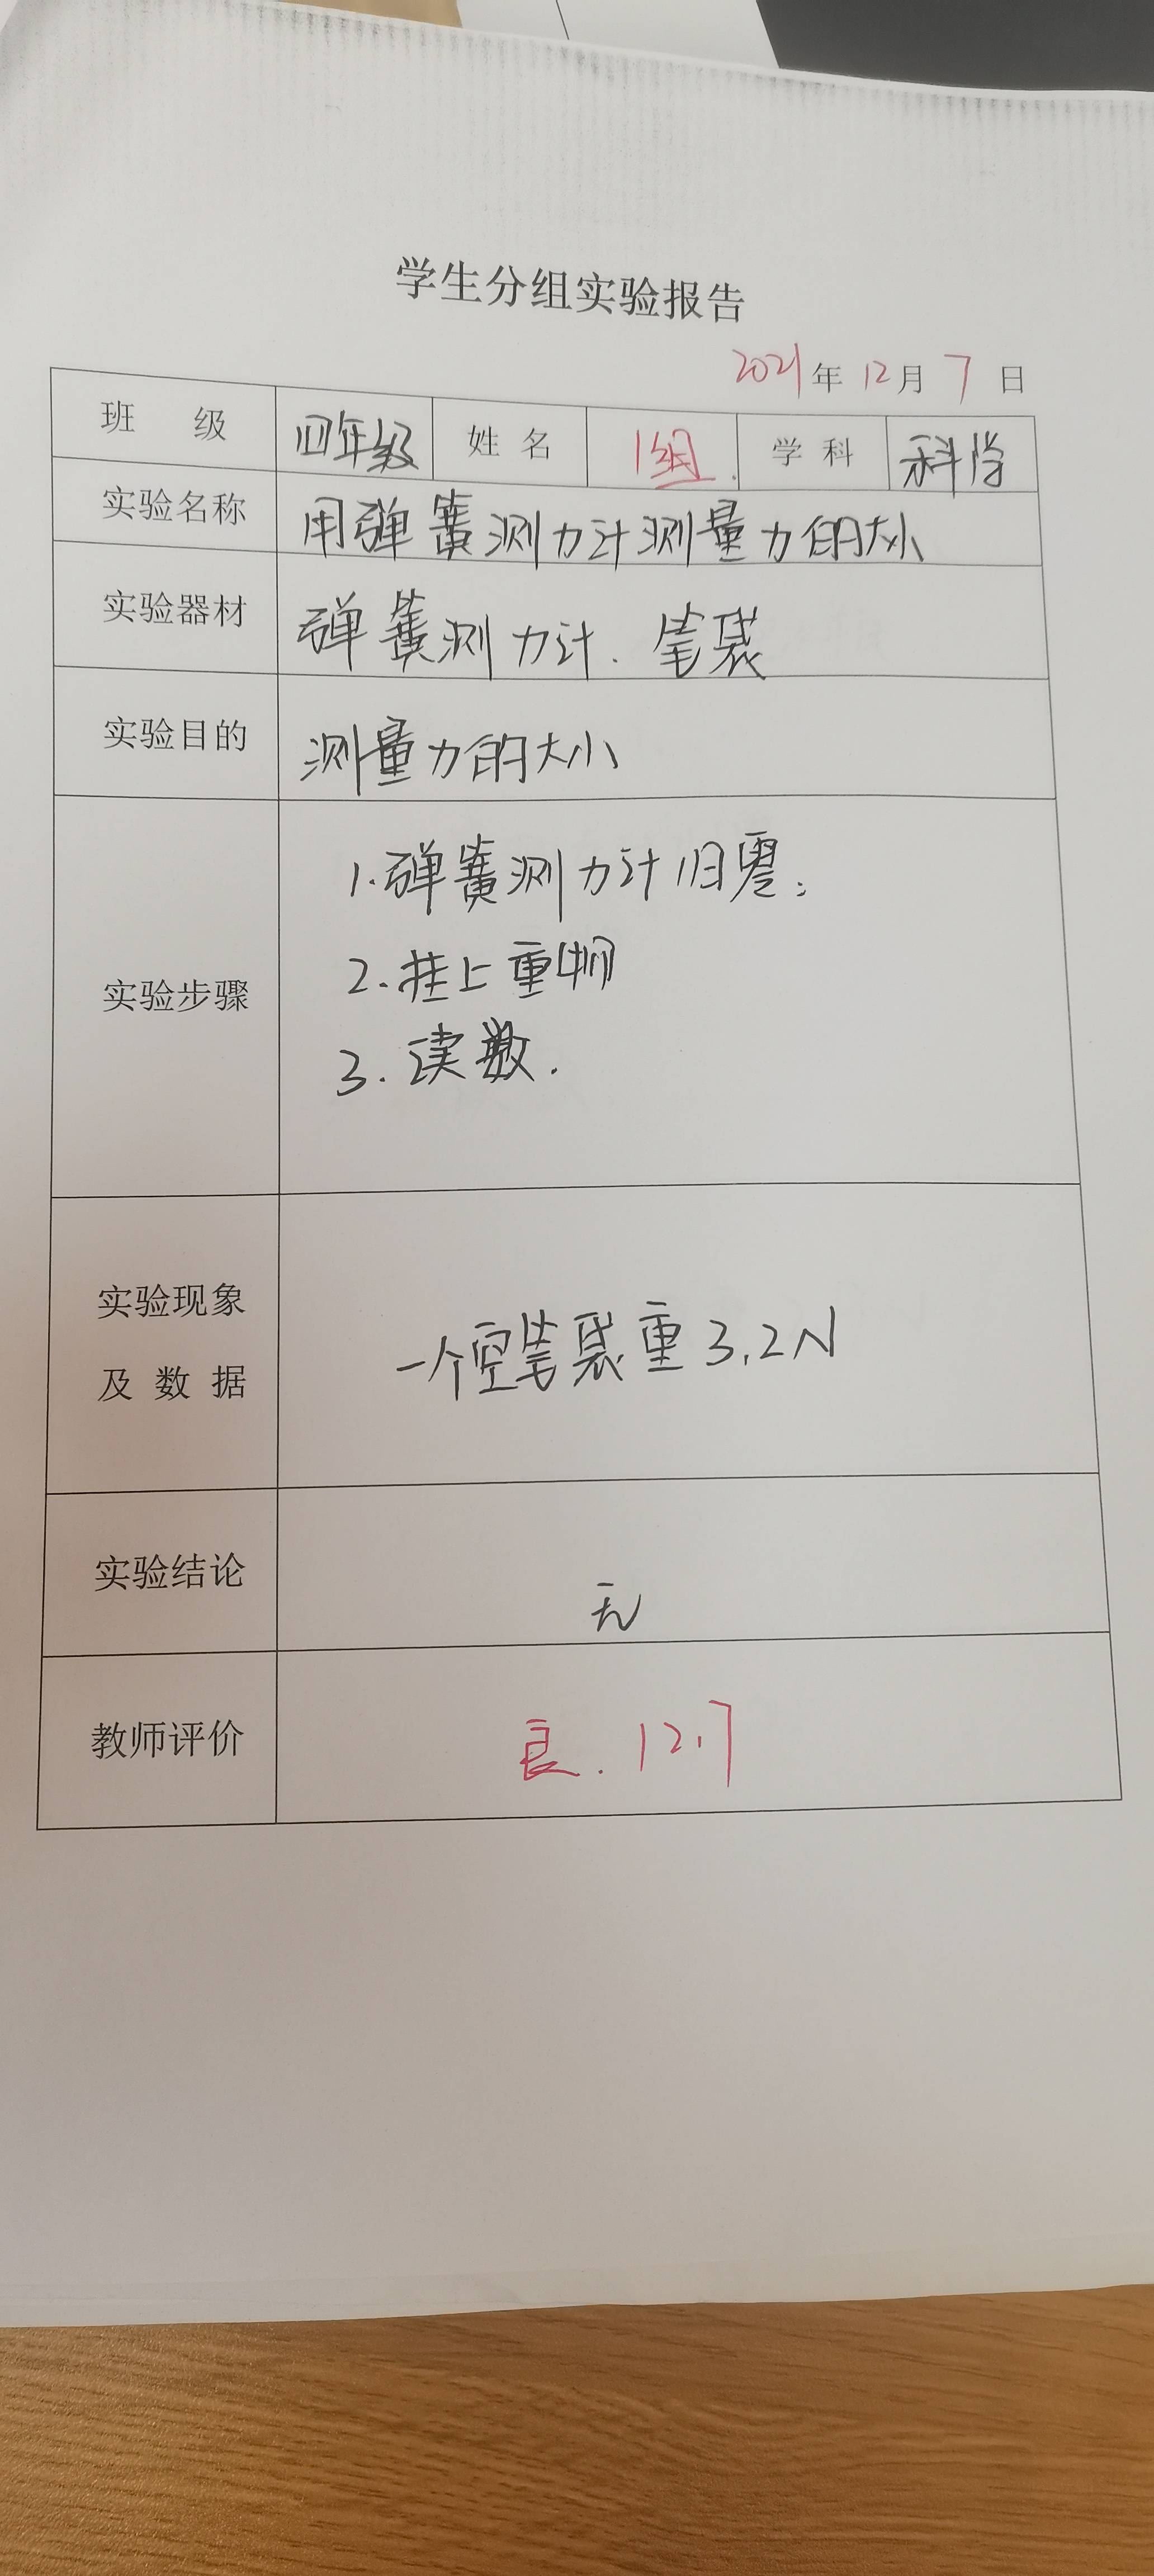 学生分组实验报告
2021年12月7日
班 级 四年级 姓名 1组. 学科 科学
实验名称 用弹簧测力计测量力的大小
实验器材 弹簧测力计. 笔袋
实验目的 测量力的大小
实验步骤
1.弹簧测力计归零;
2.挂上重物
3.读数.
实验现象
及数据
一个空笔袋重3.2N
实验结论 无
教师评价 良. 12.7